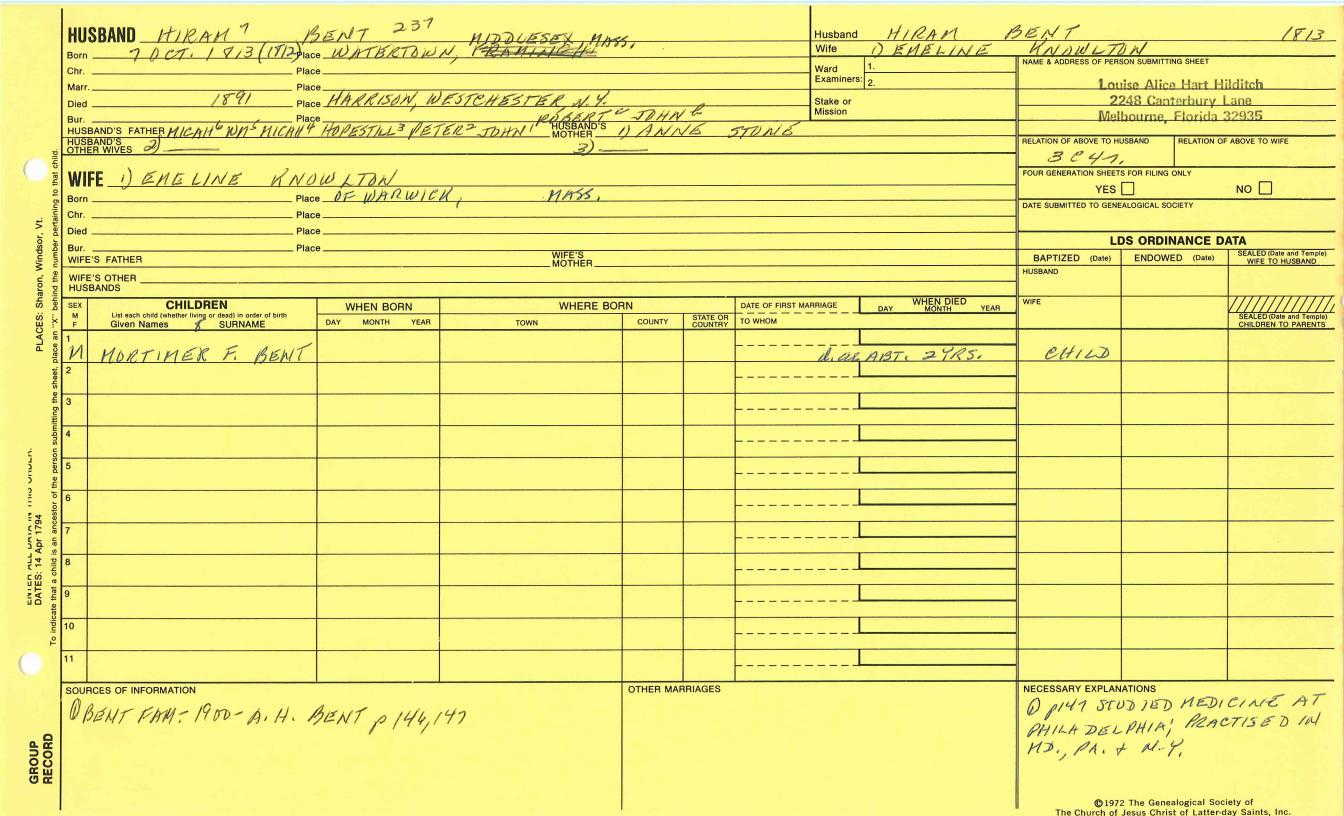 HUSBAND HIRAM 7 BENT 237
Born 7 OCT. 1813 (1812) Place WATERTOWN, MIDDLESEX, MASS.
Chr. Place
Marr. Place
Died 1891 Place HARRISON, WESTCHESTER, N.Y.
Bur. Place ROBERT JOHN
HUSBAND'S FATHER MICAH6 WM5 MICAH4 HOPESTILL3 PETER2 JOHN1 HUSBAND'S MOTHER 1) ANNE STONE
HUSBAND'S OTHER WIVES 2) 3)
Husband HIRAM BENT 1813
Wife 1) EMELINE KNOWLTON
Ward Examiners: 1.
2.
Stake or Mission
NAME & ADDRESS OF PERSON SUBMITTING SHEET
Louise Alice Hart Hilditch
2248 Canterbury Lane
Melbourne, Florida 32935
RELATION OF ABOVE TO HUSBAND RELATION OF ABOVE TO WIFE
3 C 4 r.
FOUR GENERATION SHEETS FOR FILING ONLY
YES NO
DATE SUBMITTED TO GENEALOGICAL SOCIETY
WIFE 1) EMELINE KNOWLTON
Born Place OF WARWICK, MASS.
Chr. Place
Died Place
Bur. Place
WIFE'S FATHER WIFE'S MOTHER
WIFE'S OTHER HUSBANDS
LDS ORDINANCE DATA
BAPTIZED (Date) ENDOWED (Date) SEALED (Date and Temple) WIFE TO HUSBAND
HUSBAND
WIFE
SEALED (Date and Temple) CHILDREN TO PARENTS
SEX M F
CHILDREN
List each child (whether living or dead) in order of birth
Given Names SURNAME
WHEN BORN
DAY MONTH YEAR
WHERE BORN
TOWN COUNTY STATE OR COUNTRY
DATE OF FIRST MARRIAGE
TO WHOM
WHEN DIED
DAY MONTH YEAR
1
M MORTIMER F. BENT d. at ABT. 2 YRS. CHILD
2
3
4
5
6
7
8
9
10
11
SOURCES OF INFORMATION
① BENT FAM- 1900- A.H. BENT p 146,147
OTHER MARRIAGES
NECESSARY EXPLANATIONS
① p147 STUDIED MEDICINE AT
PHILADELPHIA; PRACTISED IN
MD., PA. & N.Y.
©1972 The Genealogical Society of
The Church of Jesus Christ of Latter-day Saints, Inc.
PLACES: Sharon, Windsor, Vt.
ENTER ALL DATA IN THIS ORDER:
DATES: 14 Apr 1794
To indicate that a child is an ancestor of the person submitting the sheet, place an "X" behind the number pertaining to that child.
GROUP
RECORD